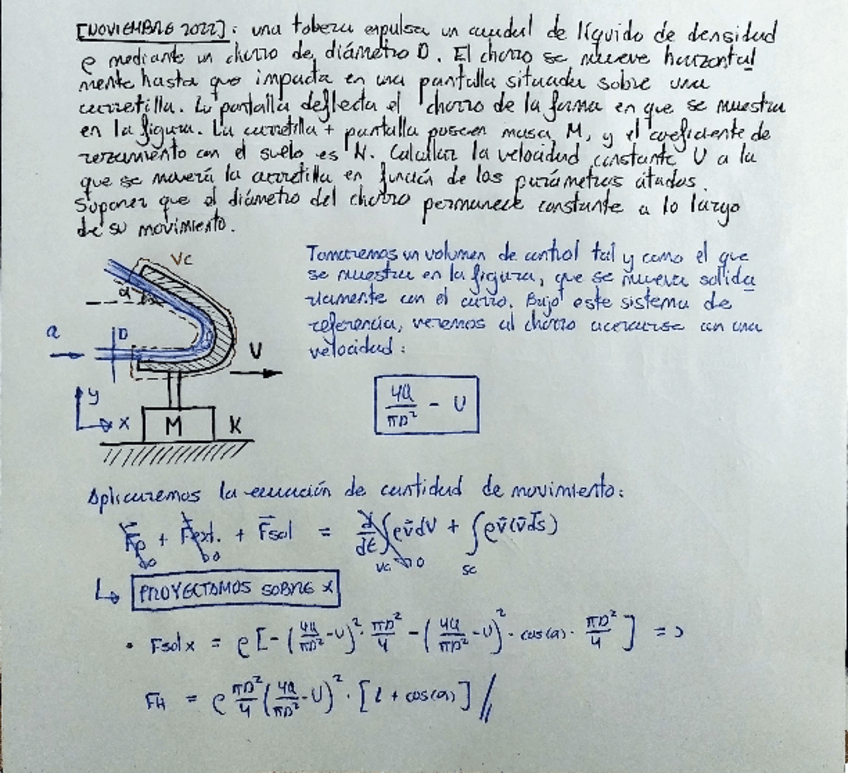 [NOVIEMBRE 2022]: una tobera expulsa un caudal de líquido de densidad
ρ mediante un chorro de diámetro D. El chorro se mueve horizontal
mente hasta que impacta en una pantalla situada sobre una
carretilla. La pantalla deflecta el chorro de la forma en que se muestra
en la figura. La carretilla + pantalla poseen masa M, y el coeficiente de
rozamiento con el suelo es N. Calcular la velocidad constante U a la
que se moverá la carretilla en función de los parámetros citados.
Suponer que el diámetro del chorro permanece constante a lo largo
de su movimiento.
Tomaremos un volumen de control tal y como el que
se muestra en la figura, que se mueva solida
riamente con el carro. Bajo este sistema de
referencia, veremos al chorro acercarse con una
velocidad:
VC
α
Q
D
U
y
x
M
K
4Q/πD² - U
Aplicaremos la ecuación de cantidad de movimiento:
Fp + Fext. + Fsol = d/dt ∫ρv̄dV + ∫ρv̄(v̄ds̄)
→0 →0 VC →0 SC
↳ PROYECTAMOS SOBRE X
• Fsolx = ρ[-(4Q/πD²-U)²·πD²/4 - (4Q/πD²-U)²·cos(α)·πD²/4] =>
FH = ρ πD²/4 (4Q/πD²-U)²·[1+cos(α)] //